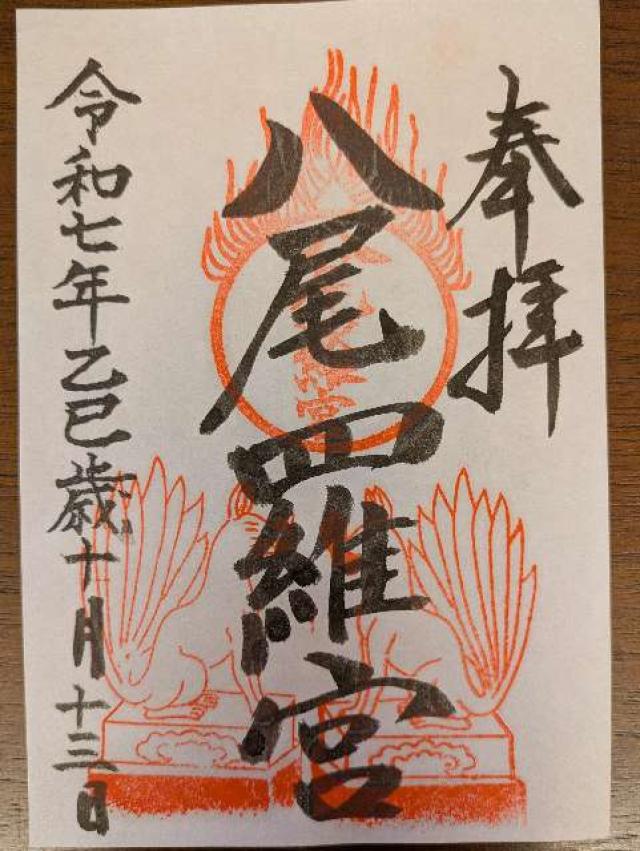 奉拝
八尾羅宮
令和七年乙巳歳十月十三日